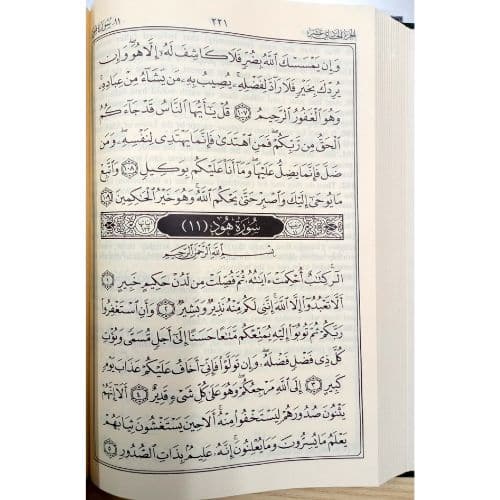 ١١- سورة هود
٢٢١
الجزء الحادي عشر
وَإِن يَمْسَسْكَ ٱللَّهُ بِضُرٍّ فَلَا كَاشِفَ لَهُۥٓ إِلَّا هُوَ ۖ وَإِن
يُرِدْكَ بِخَيْرٍ فَلَا رَآدَّ لِفَضْلِهِۦ ۚ يُصِيبُ بِهِۦ مَن يَشَآءُ مِنْ عِبَادِهِۦ ۚ
وَهُوَ ٱلْغَفُورُ ٱلرَّحِيمُ ﴿١٠٧﴾ قُلْ يَـٰٓأَيُّهَا ٱلنَّاسُ قَدْ جَآءَكُمُ
ٱلْحَقُّ مِن رَّبِّكُمْ ۖ فَمَنِ ٱهْتَدَىٰ فَإِنَّمَا يَهْتَدِى لِنَفْسِهِۦ ۖ وَمَن
ضَلَّ فَإِنَّمَا يَضِلُّ عَلَيْهَا ۖ وَمَآ أَنَا۠ عَلَيْكُم بِوَكِيلٍ ﴿١٠٨﴾ وَٱتَّبِعْ
مَا يُوحَىٰٓ إِلَيْكَ وَٱصْبِرْ حَتَّىٰ يَحْكُمَ ٱللَّهُ ۚ وَهُوَ خَيْرُ ٱلْحَـٰكِمِينَ ﴿١٠٩﴾
سُورَةُ هُودٍ (١١)
بِسْمِ ٱللَّهِ ٱلرَّحْمَـٰنِ ٱلرَّحِيمِ
الٓر ۚ كِتَـٰبٌ أُحْكِمَتْ ءَايَـٰتُهُۥ ثُمَّ فُصِّلَتْ مِن لَّدُنْ حَكِيمٍ خَبِيرٍ ﴿١﴾
أَلَّا تَعْبُدُوٓا۟ إِلَّا ٱللَّهَ ۚ إِنَّنِى لَكُم مِّنْهُ نَذِيرٌ وَبَشِيرٌ ﴿٢﴾ وَأَنِ ٱسْتَغْفِرُوا۟
رَبَّكُمْ ثُمَّ تُوبُوٓا۟ إِلَيْهِ يُمَتِّعْكُم مَّتَـٰعًا حَسَنًا إِلَىٰٓ أَجَلٍ مُّسَمًّى وَيُؤْتِ
كُلَّ ذِى فَضْلٍ فَضْلَهُۥ ۖ وَإِن تَوَلَّوْا۟ فَإِنِّىٓ أَخَافُ عَلَيْكُمْ عَذَابَ يَوْمٍ
كَبِيرٍ ﴿٣﴾ إِلَى ٱللَّهِ مَرْجِعُكُمْ ۖ وَهُوَ عَلَىٰ كُلِّ شَىْءٍ قَدِيرٌ ﴿٤﴾ أَلَآ إِنَّهُمْ
يَثْنُونَ صُدُورَهُمْ لِيَسْتَخْفُوا۟ مِنْهُ ۚ أَلَا حِينَ يَسْتَغْشُونَ ثِيَابَهُمْ
يَعْلَمُ مَا يُسِرُّونَ وَمَا يُعْلِنُونَ ۚ إِنَّهُۥ عَلِيمٌۢ بِذَاتِ ٱلصُّدُورِ ﴿٥﴾